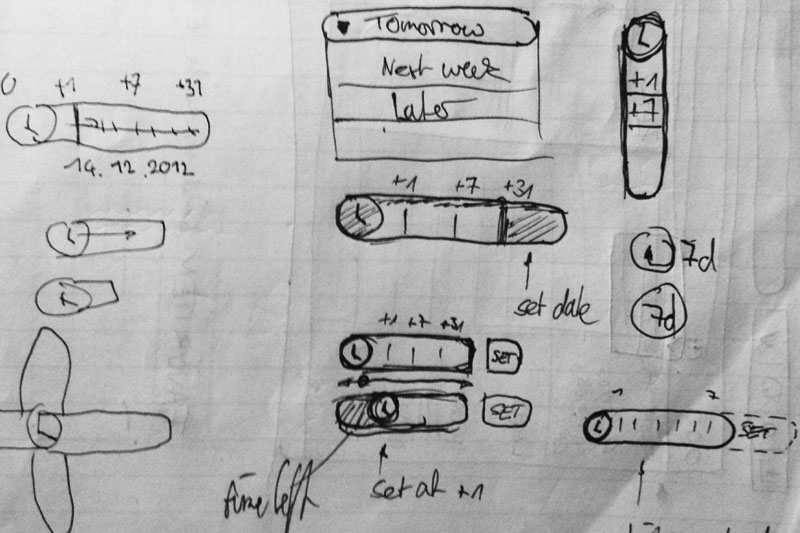 0 +1 +7 +31
14.12.2012
Tomorrow
Next week
Later
+1 +7 +31
set date
+1 +7 +31
SET
SET
time left
set at +1
+1
+7
7d
7d
1 7
SET